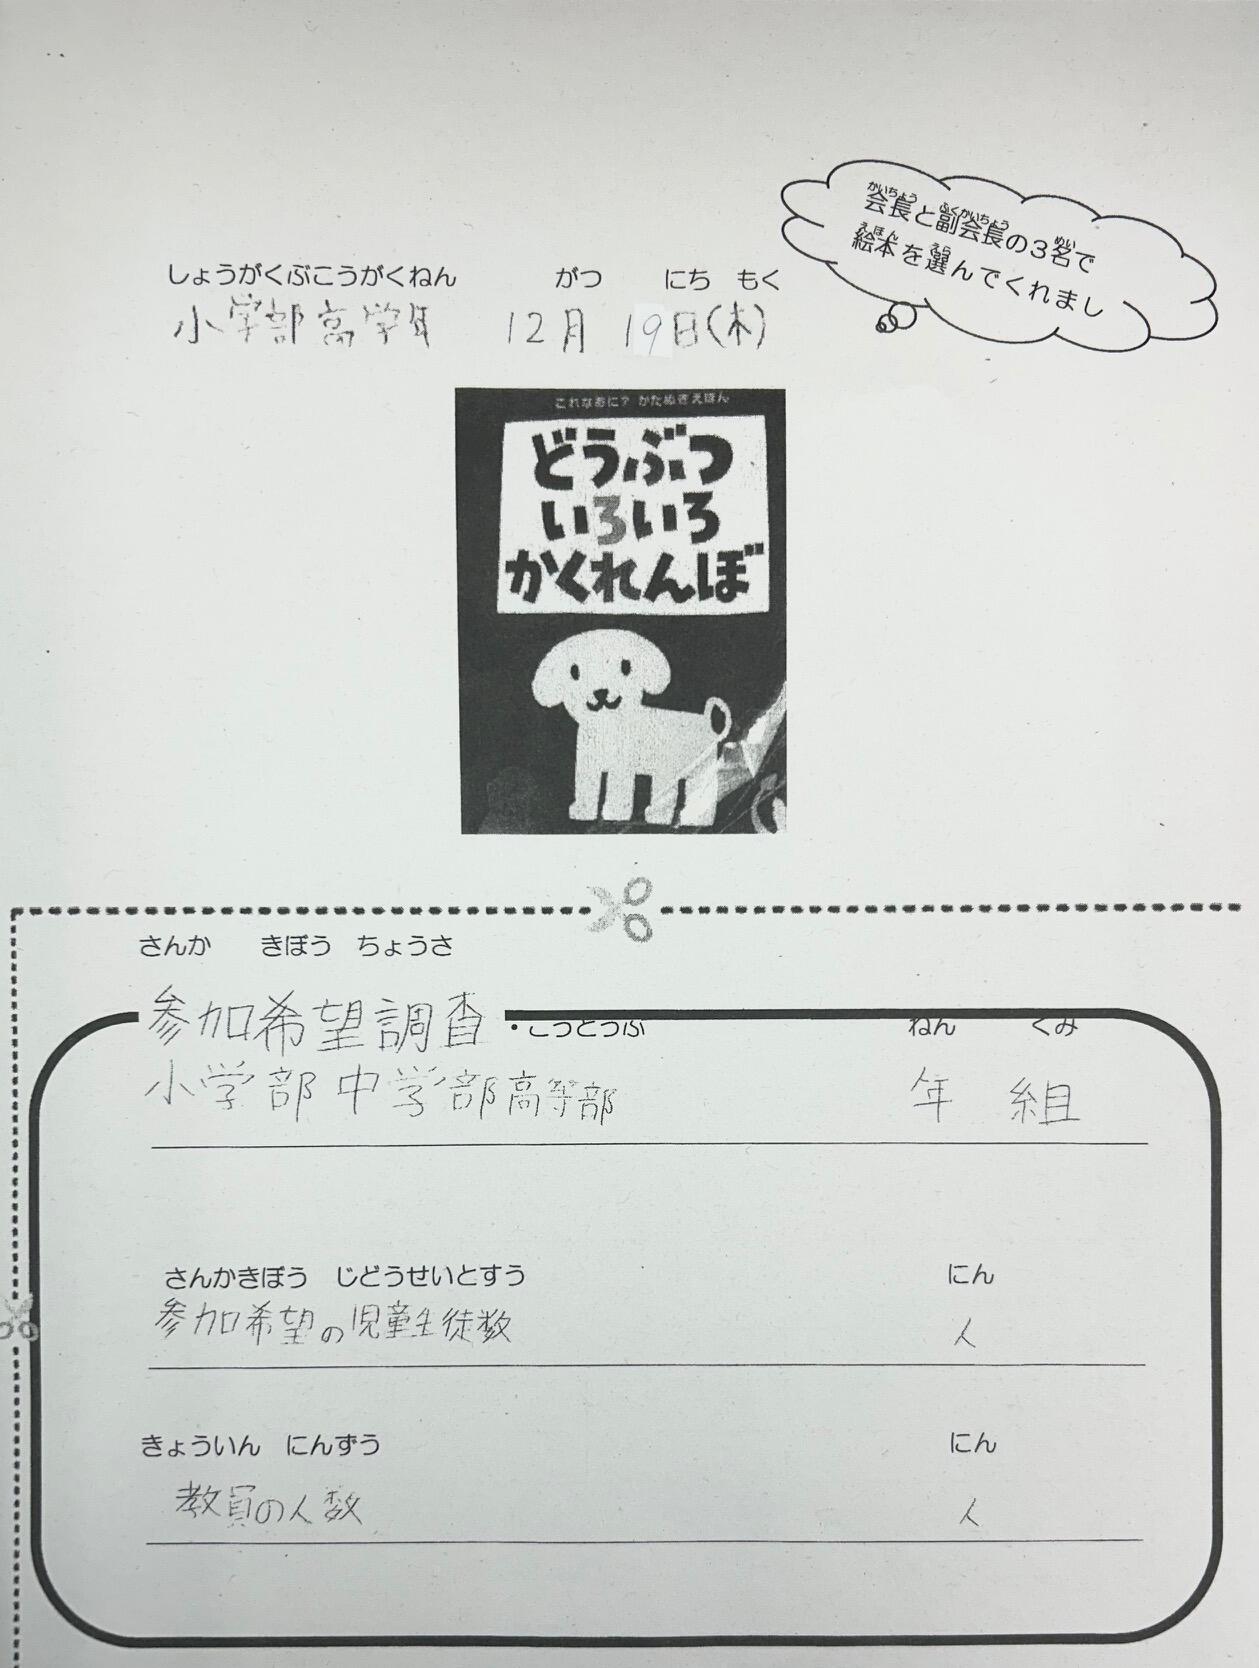 かいちょう ふくかいちょう めい
会長と副会長の3名で
えほん えら
絵本を選んでくれまし
しょうがくぶこうがくねん がつ にち もく
小学部高学年 12月 19日(木)
これなあに? かたぬきえほん
どうぶつ
いろいろ
かくれんぼ
さんか きぼう ちょうさ
参加希望調査
・こうとうぶ ねん くみ
小学部中学部高等部 年 組
さんかきぼう じどうせいとすう にん
参加希望の児童生徒数 人
きょういん にんずう にん
教員の人数 人